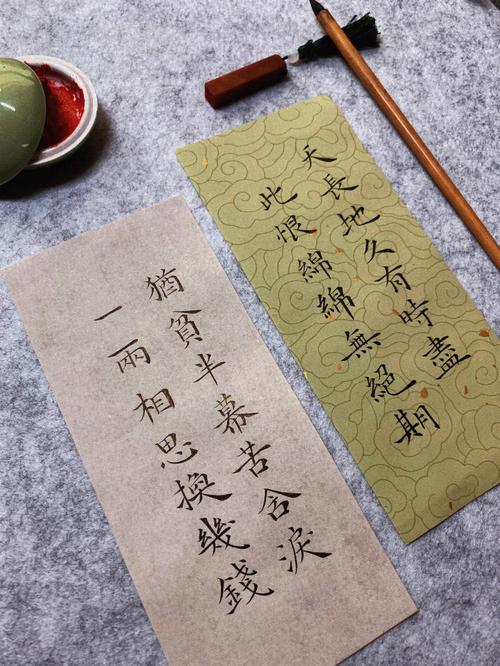 天長地久有時盡
此恨綿綿無絕期
猶貧半幕苦含淚
一兩相思換幾錢